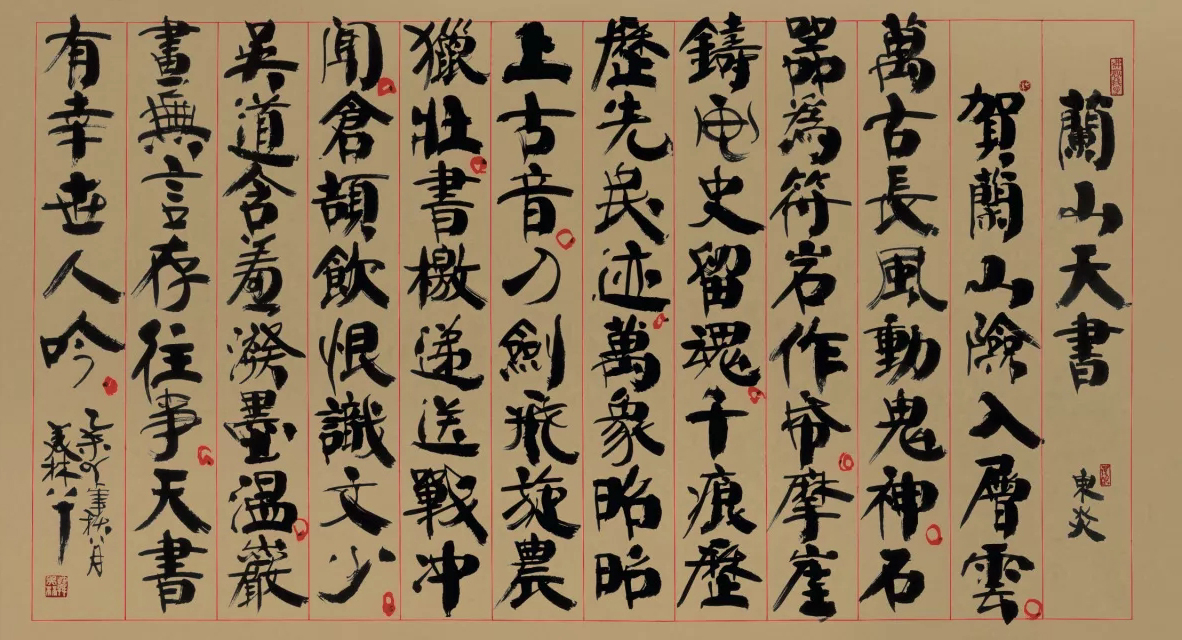 蘭山天書 東炎
賀蘭山險入層雲
萬古長風動鬼神石
器為符岩作帋摩崖
鑄画史留魂千痕歷
歷先民迹萬象昭昭
上古音刀劍飛旋農
獵壯書檄遞送戰冲
聞倉頡飲恨識文少
吳道含羞潑墨溫巖
畫無言存往事天書
有幸世人吟
乙未秋八月
美林八十